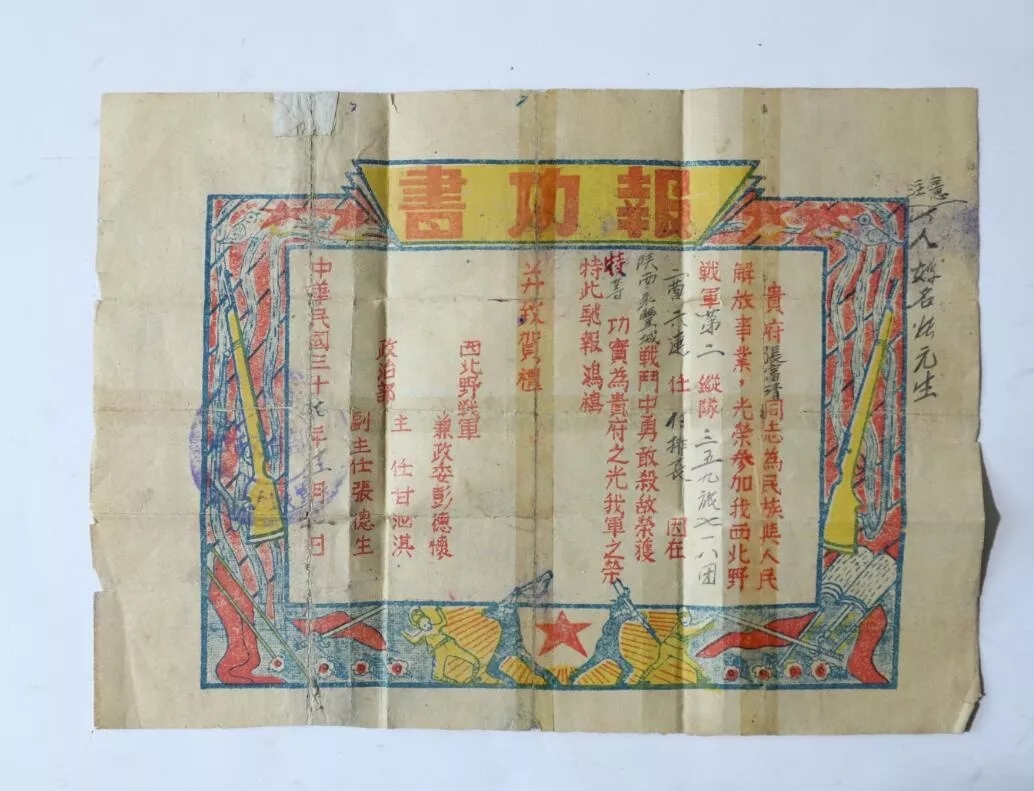 報功書
注意
貴府張富清同志為民族與人民
解放事業，光榮參加我西北野
戰軍第二縱隊三五九旅七一八团
二营六連 任 付排長 因在
陝西永豐城戰鬥中勇敢殺敌榮獲
特等 功實為貴府之光我軍之榮
特此馳報鴻禧
并 賀禮
西北野戰軍
兼政委彭德懷
政治部
主任甘泗淇
副主任張德生
中華民國三十 年 月 日